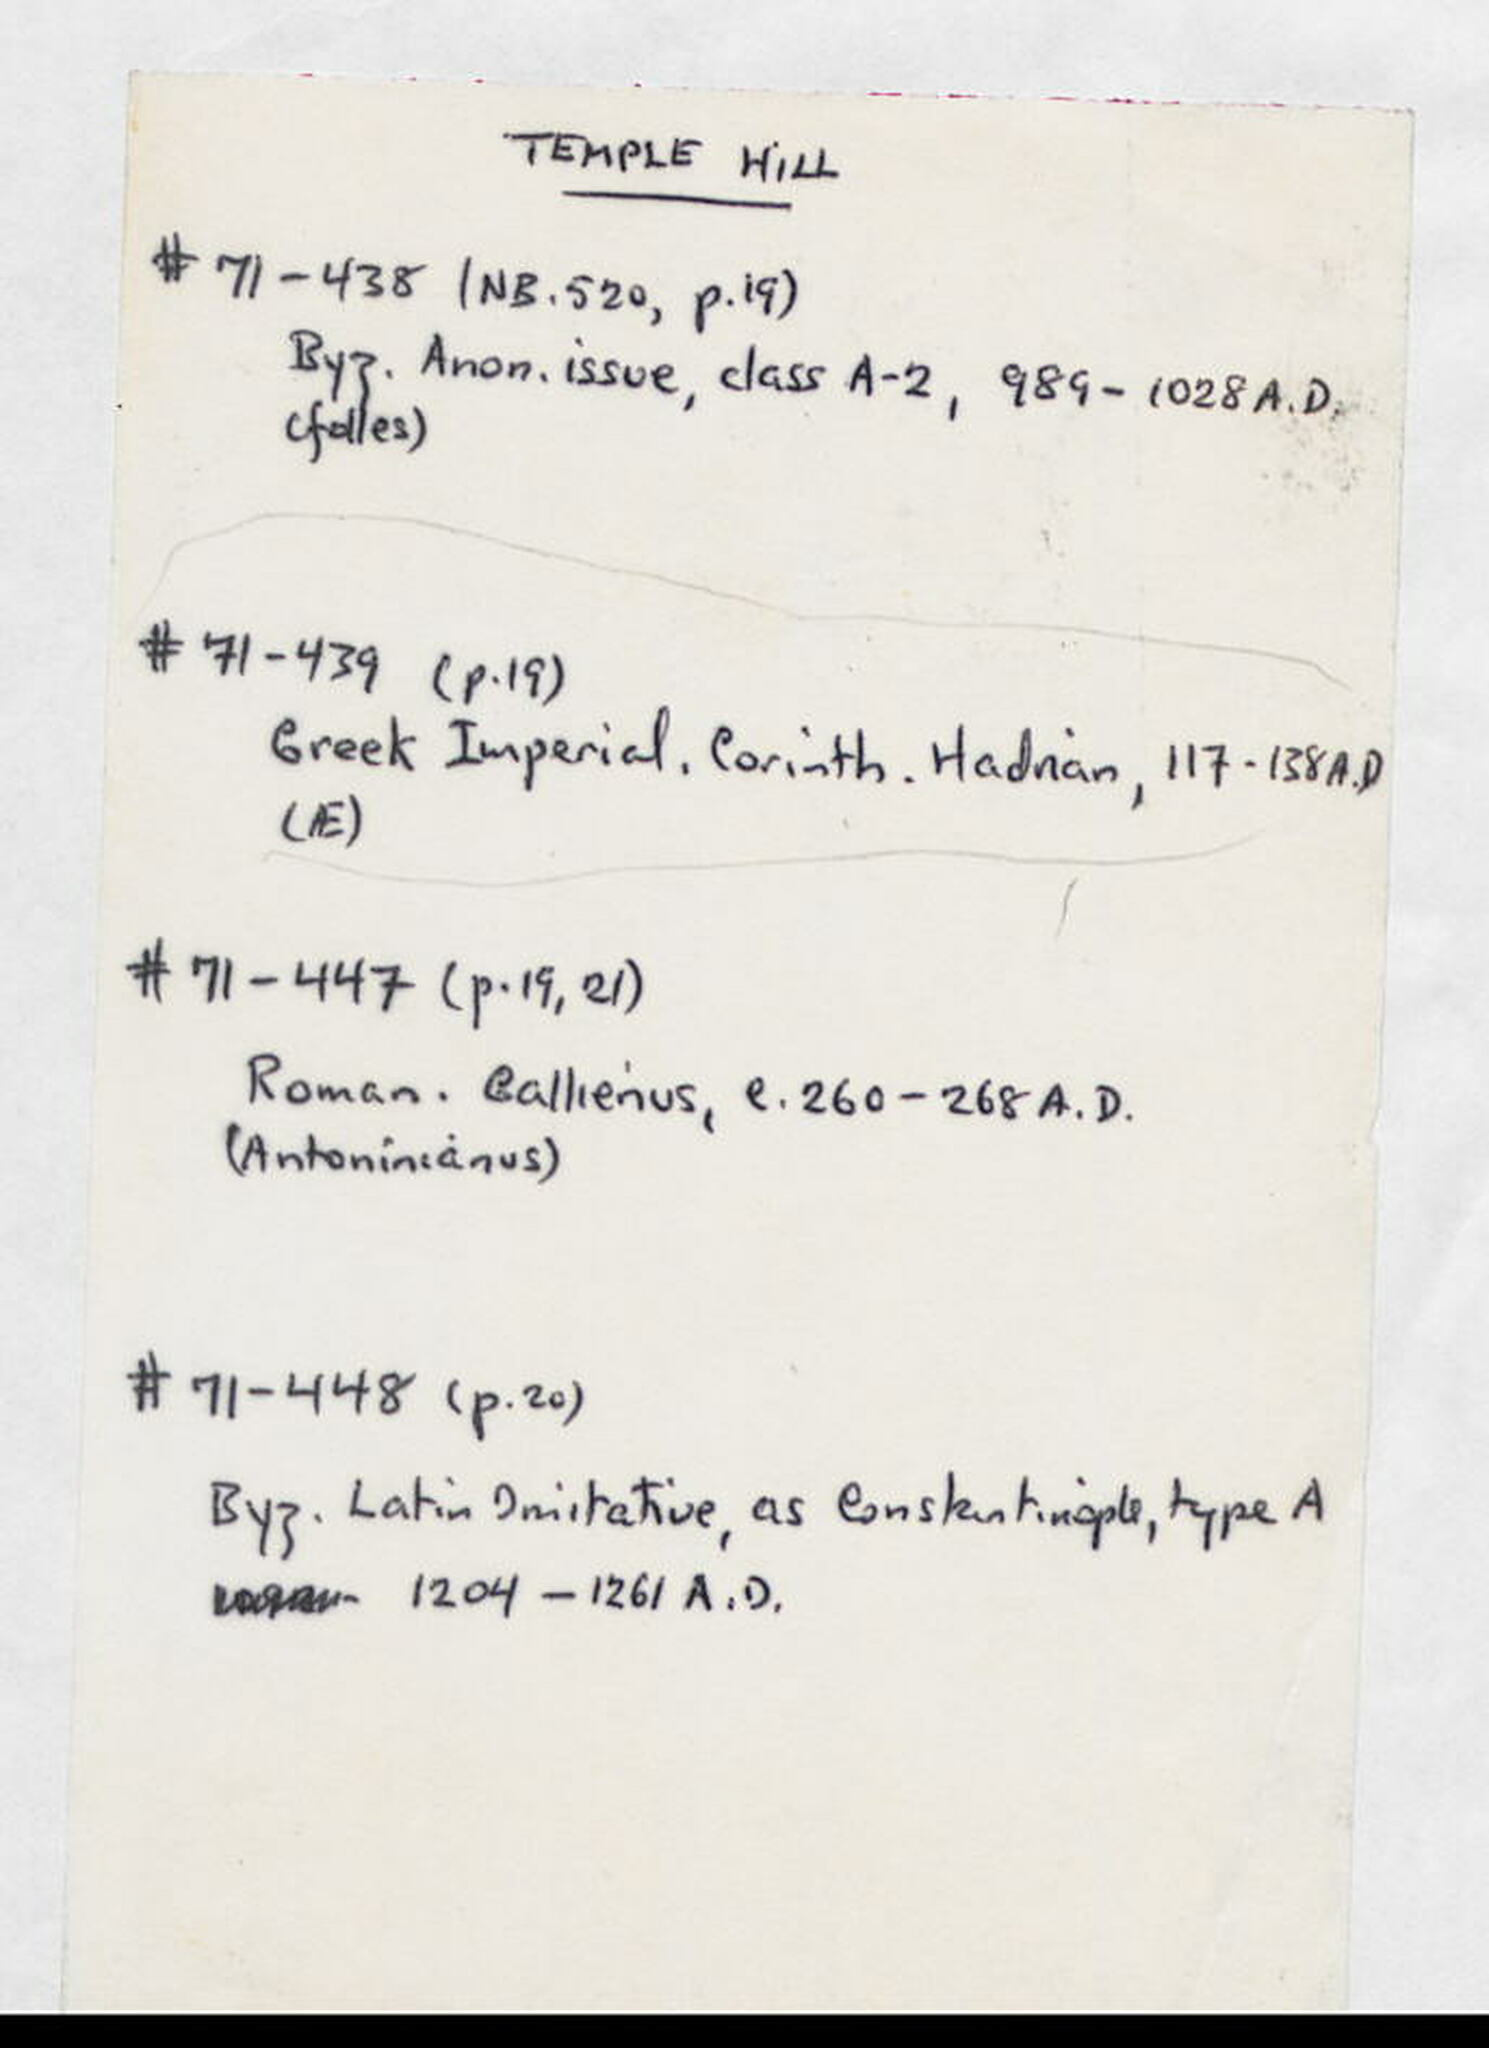 TEMPLE HILL
# 71-438 (NB.520, p.19)
Byz. Anon. issue, class A-2, 989-1028 A.D.
(folles)
# 71-439 (p.19)
Greek Imperial. Corinth. Hadrian, 117-138 A.D
(Æ)
# 71-447 (p.19, 21)
Roman. Gallienus, c. 260-268 A.D.
(Antoninianus)
# 71-448 (p.20)
Byz. Latin Imitative, as Constantinople, type A
1204-1261 A.D.